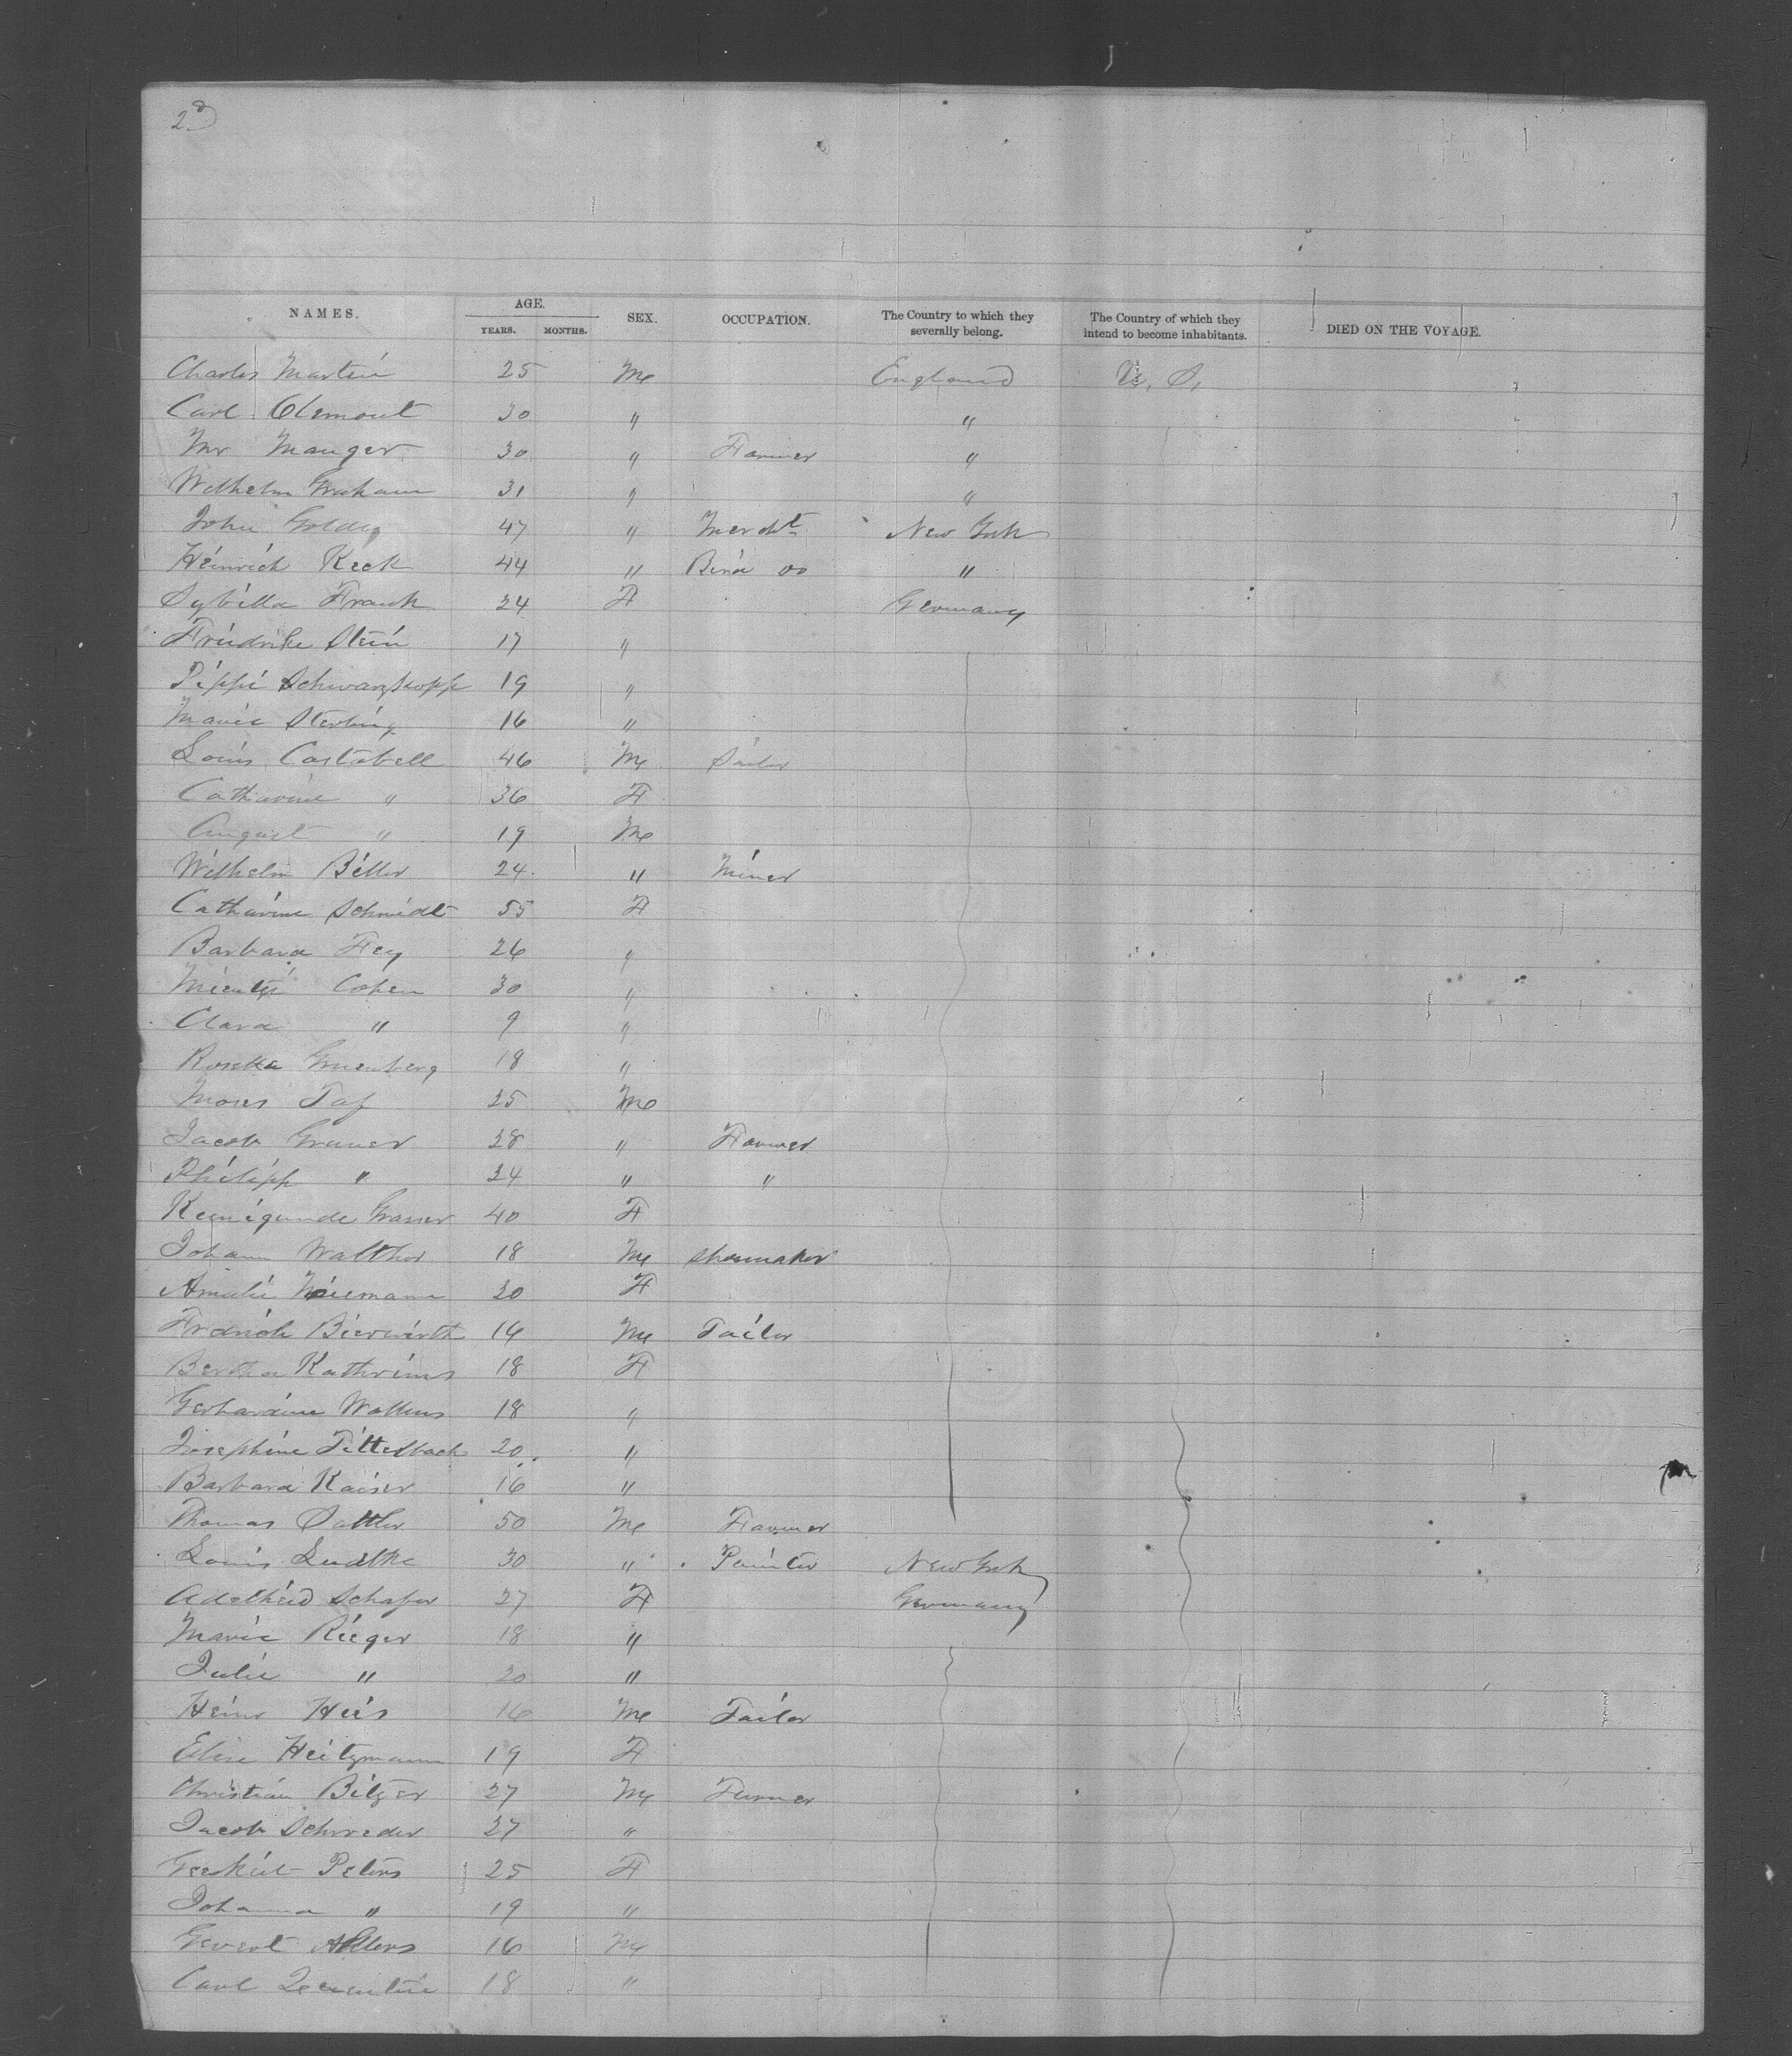 2d
NAMES. AGE. SEX. OCCUPATION. The Country to which they severally belong. The Country of which they intend to become inhabitants. DIED ON THE VOYAGE.
YEARS. MONTHS.
Charles Martin 25 M England U, S,
Carl Clemont 30 " "
Mr Manger 30 " Farmer "
Wilhelm Graham 31 " "
John 47 " Mercht New York
Heinrich Keck 44 " "
Sybilla Frank 24 F Germany
Friedrike Stein 17 "
Pippi Schwarzkopf 19 "
Marie Sterbing 16 "
Louis Castabell 46 M Sailor
Catharine " 36 F
August " 19 M
Wilhelm Biller 24 " Miner
Catharine Schmidt 55 F
Barbara Fey 26 "
Cohen 30 "
Clara " 9 "
Rosetta Gruenberg 18 "
Moses 25 M
Jacob Graner 28 " Farmer
Philipp " 24 " "
Kunigunde Grasser 40 F
Johann Walther 18 M Shoemaker
Amalie Niemann 20 F
Fredrich Bierwirth 14 M Tailor
Bertha Kathrins 18 F
Gerhardine Walkens 18 "
Josephine Tittelbach 20 "
Barbara Kaiser 16 "
Thomas Sattler 50 M Farmer
Louis Luedtke 30 " Painter New York
Adelheid Schafer 27 F Germany
Marie Rieger 18 "
Julie " 20 "
Heinr Heis 16 M Tailor
Elise Heitzmann 19 F
Christian Bitzer 27 M Turner
Jacob Schroeder 27 "
Peters 25 F
Johanna " 19 "
Gevert Ahlers 16 M
Carl Quentin 18 "